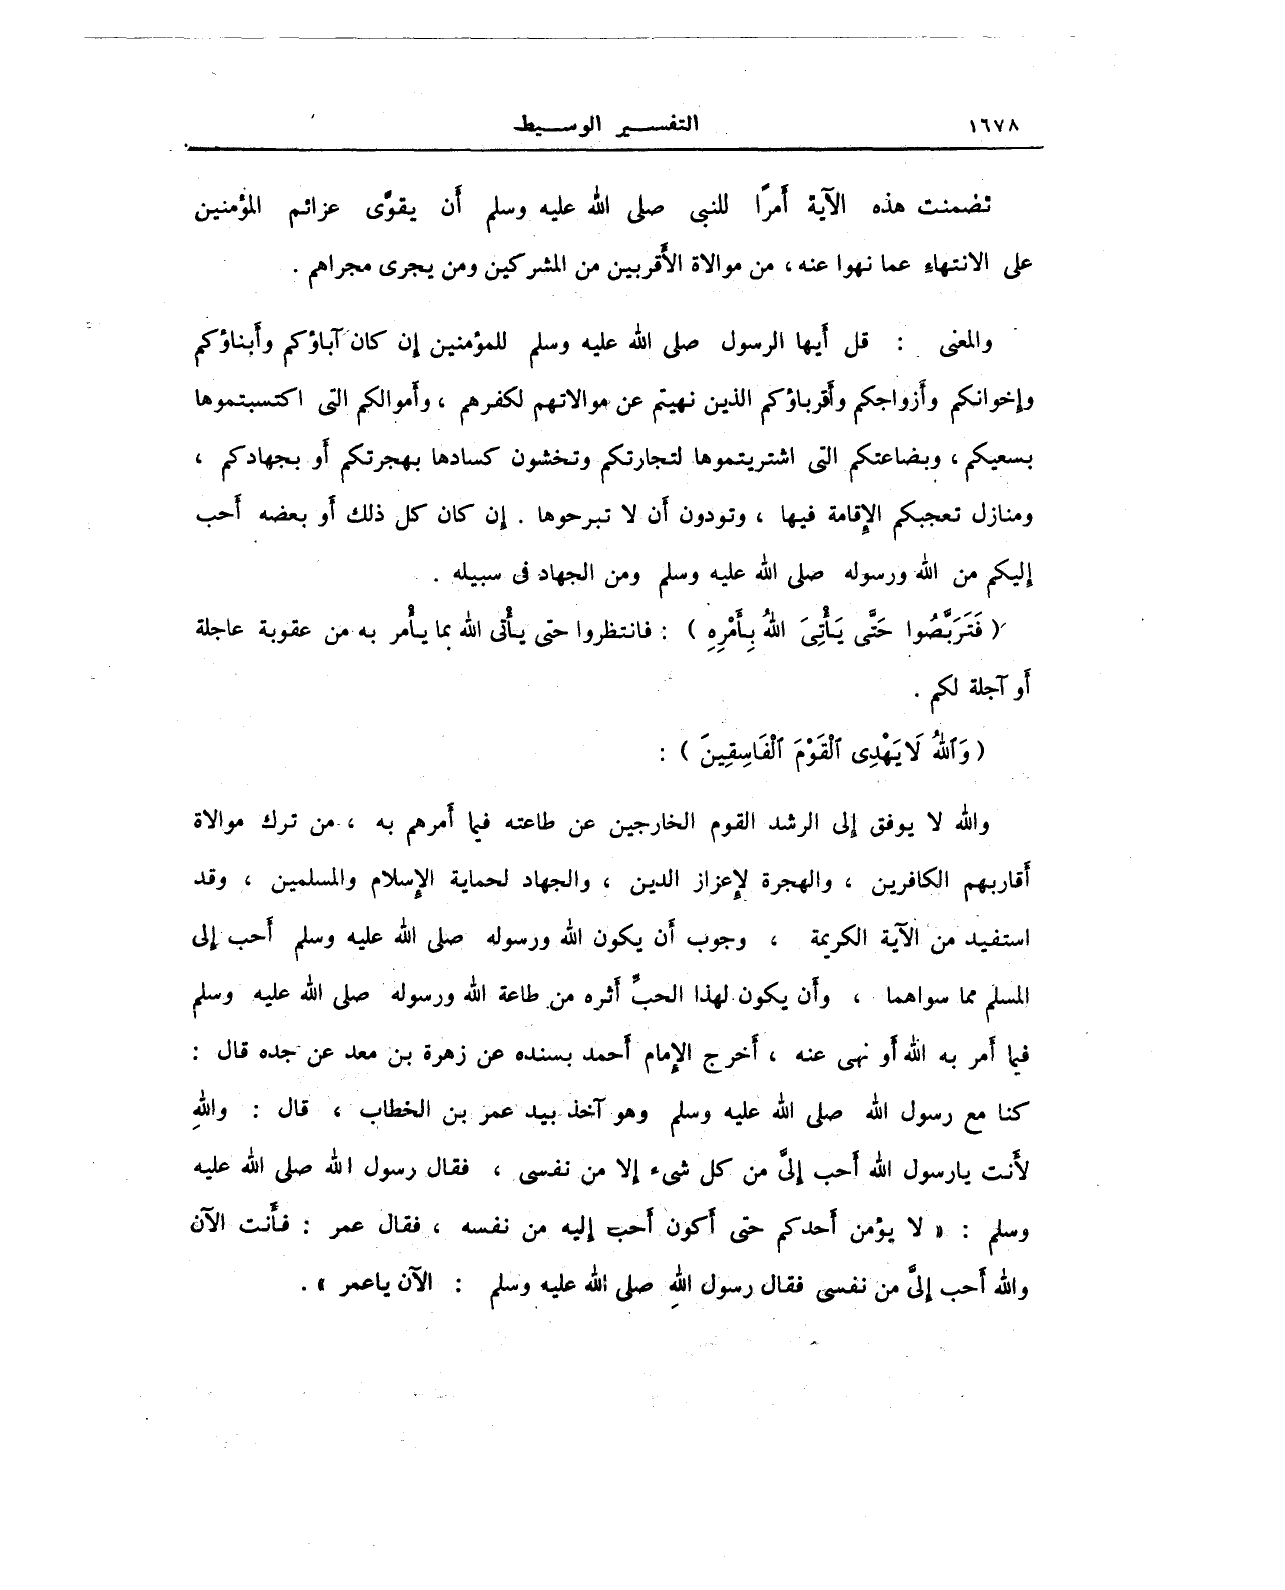 ١٦٧٨ التفسير الوسيط
تضمنت هذه الآية أمرًا للنبى صلى الله عليه وسلم أن يقوَّى عزائم المؤمنين
على الانتهاء عما نهوا عنه ، من موالاة الأقربين من المشركين ومن يجرى مجراهم .
والمعنى : قل أيها الرسول صلى الله عليه وسلم للمؤمنين إن كان آباؤكم وأبناؤكم
وإخوانكم وأزواجكم وأقرباؤكم الذين نهيتم عن موالاتهم لكفرهم ، وأموالكم التى اكتسبتموها
بسعيكم ، وبضاعتكم التى اشتريتموها لتجارتكم وتخشون كسادها بهجرتكم أو بجهادكم ،
ومنازل تعجبكم الإقامة فيها ، وتودون أن لا تبرحوها . إن كان كل ذلك أو بعضه أحب
إليكم من الله ورسوله صلى الله عليه وسلم ومن الجهاد فى سبيله .
( فَتَرَبَّصُوا حَتَّى يَأْتِىَ اللهُ بِأَمْرِهِ ) : فانتظروا حتى يأْتى الله بما يأْمر به من عقوبة عاجلة
أو آجلة لكم .
( وَٱللهُ لَا يَهْدِى ٱلْقَوْمَ ٱلْفَاسِقِينَ ) :
والله لا يوفق إلى الرشد القوم الخارجين عن طاعته فيما أمرهم به ، من ترك موالاة
أقاربهم الكافرين ، والهجرة لإعزاز الدين ، والجهاد لحماية الإسلام والمسلمين ، وقد
استفيد من الآية الكريمة ، وجوب أن يكون الله ورسوله صلى الله عليه وسلم أحب إلى
المسلم مما سواهما ، وأن يكون لهذا الحبِّ أثره من طاعة الله ورسوله صلى الله عليه وسلم
فيما أمر به الله أو نهى عنه ، أخرج الإمام أحمد بسنده عن زهرة بن معد عن جده قال :
كنا مع رسول الله صلى الله عليه وسلم وهو آخذ بيد عمر بن الخطاب ، قال : واللهِ
لأنت يارسول الله أحب إلىَّ من كل شىء إلا من نفسى ، فقال رسول الله صلى الله عليه
وسلم : « لا يؤمن أحدكم حتى أكون أحب إليه من نفسه ، فقال عمر : فأنت الآن
والله أحب إلىَّ من نفسى فقال رسول اللهِ صلى الله عليه وسلم : الآن ياعمر » .